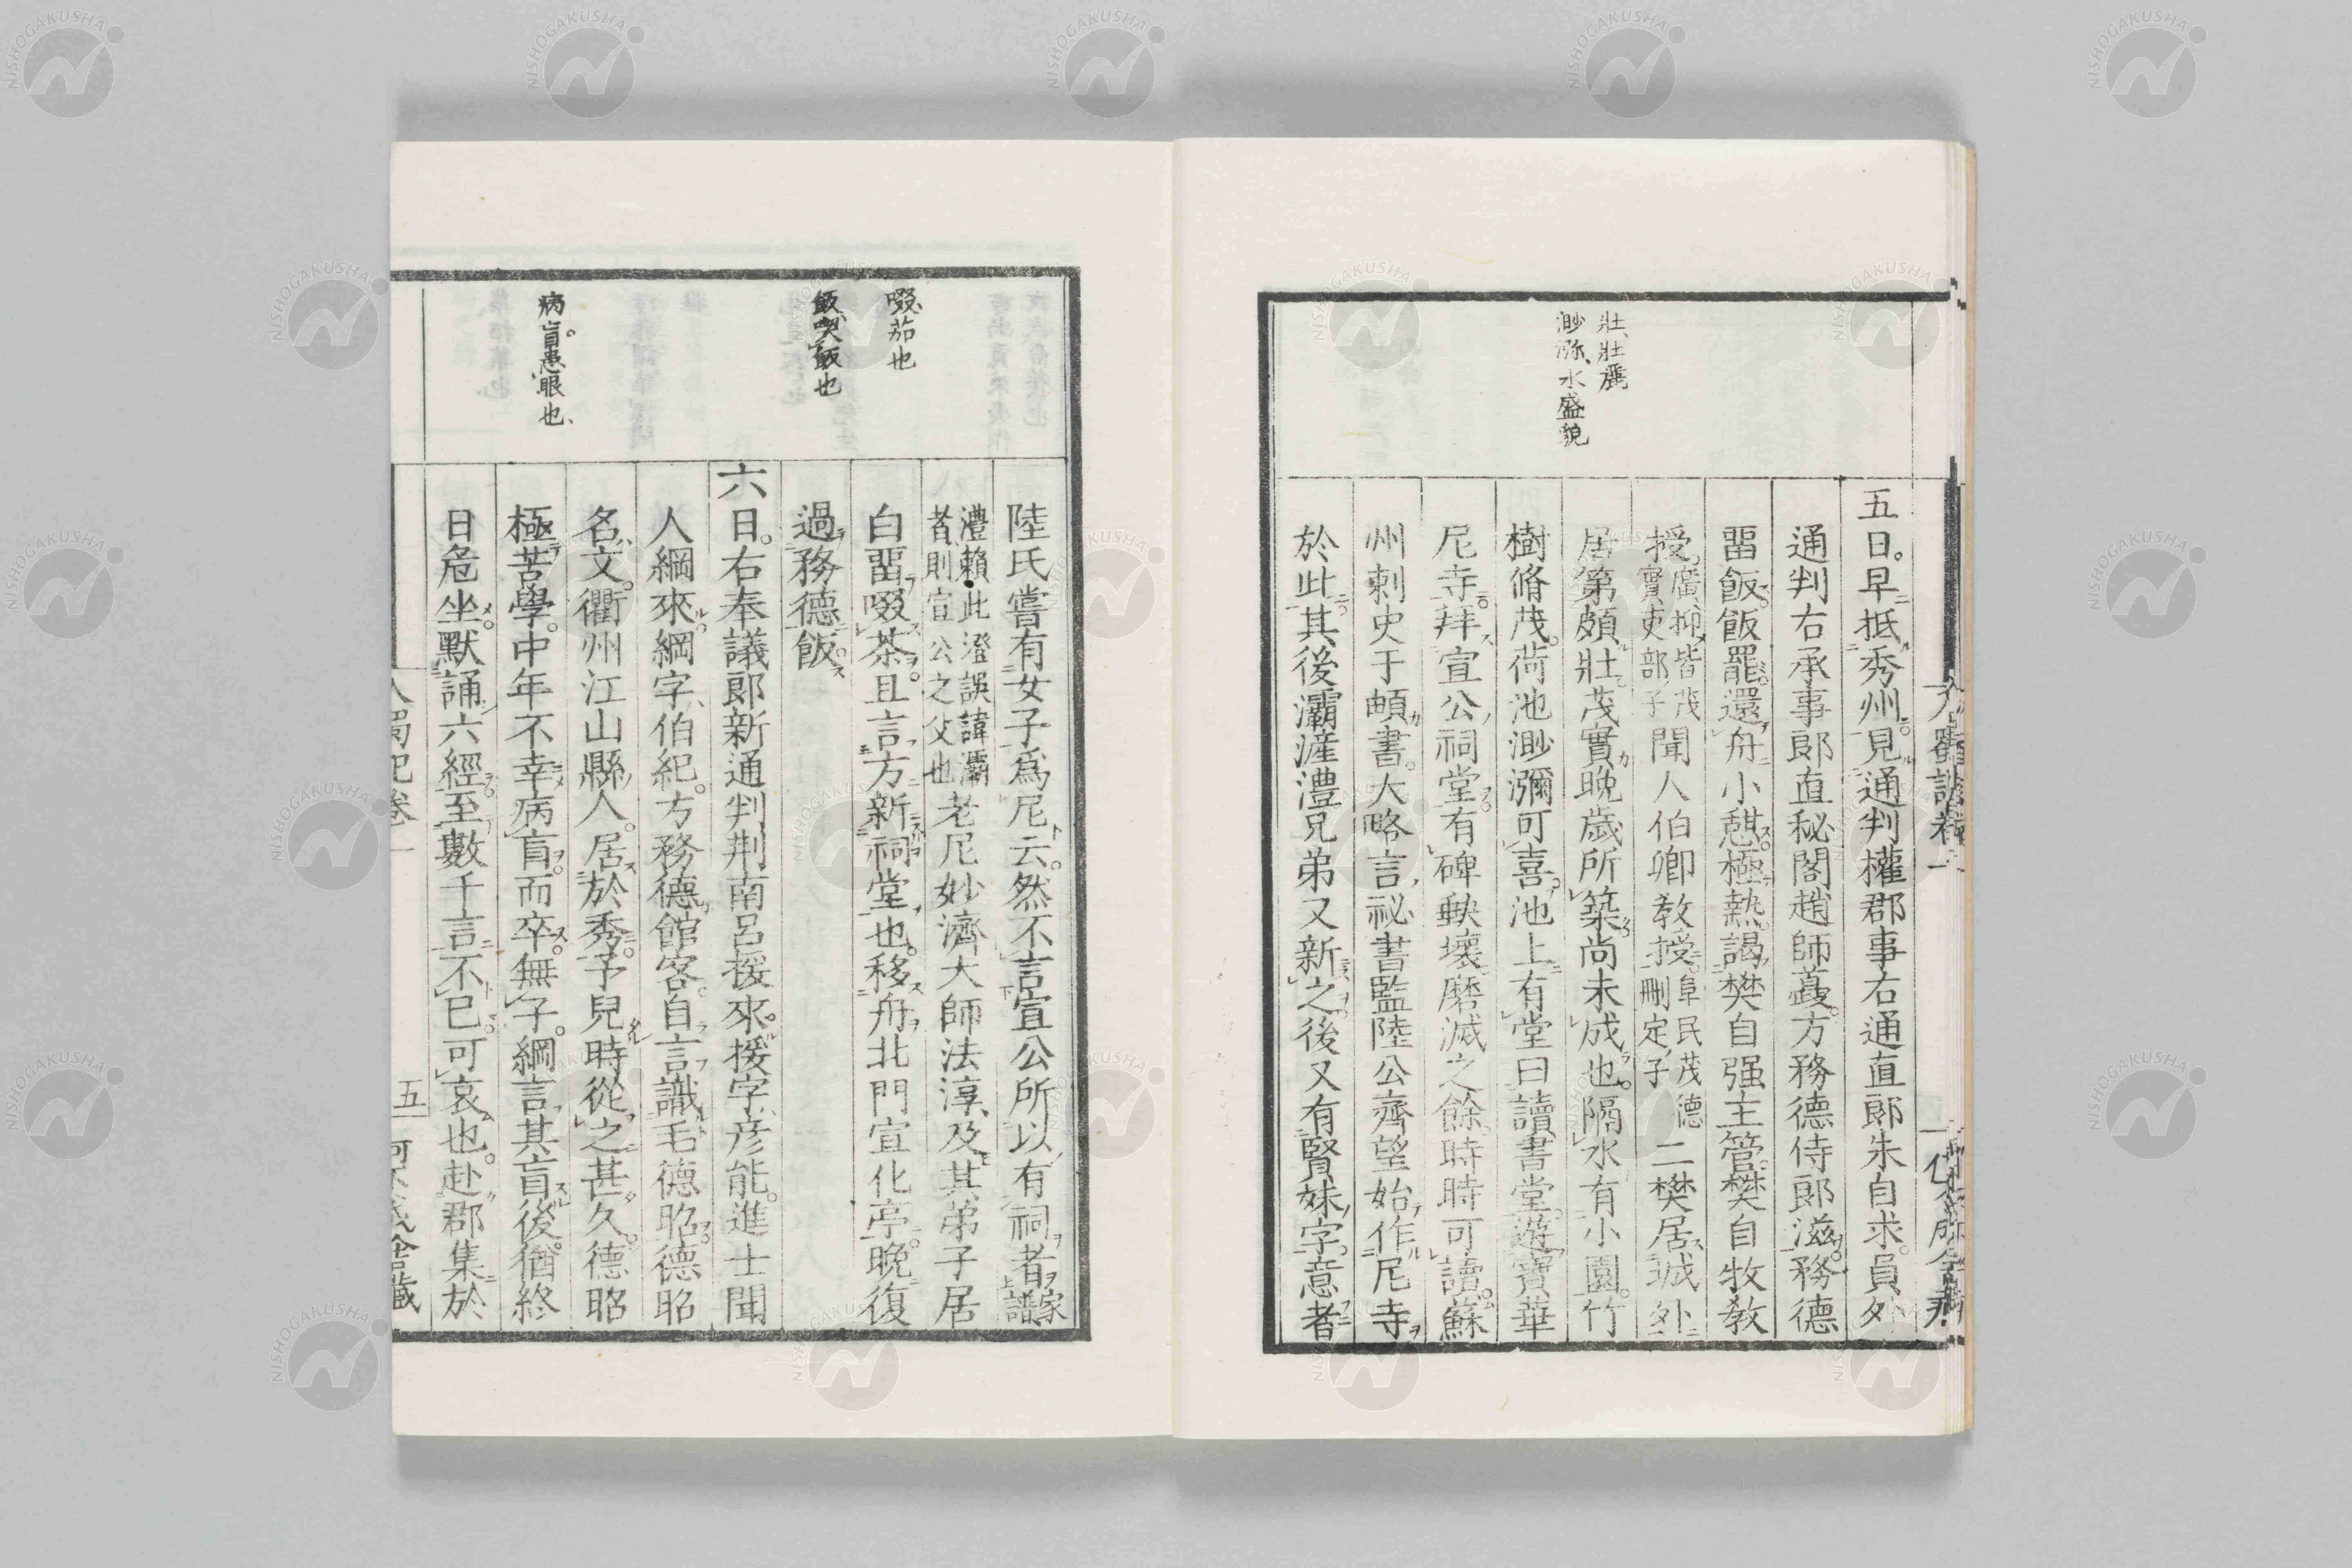 壯、壯麗
渺㳽、水盛貌
五日。早抵秀州。見通判權郡事右通直郎朱自求。員外
通判右承事郎直秘閣趙師夔。方務德侍郎滋。務德
畱飯。飯罷。還舟小憩。極熱。謁樊自强主管。樊自牧敎
授。廣抑、皆茂
實吏部子
聞人伯卿敎授。阜民茂德
刪定子
二樊居城外
居第頗壯。茂實晚歲所築。尚未成也。隔水有小園。竹
樹脩茂。荷池渺瀰可喜。池上有堂曰讀書堂。遊寶華
尼寺。拜宣公祠堂。有碑缺壞磨滅之餘。時時可讀。蘇
州刺史于頔書。大略言、秘書監陸公齊望始作尼寺
於此。其後灞滻澧兄弟又新之。後又有賢妹字。意者
啜、茹也
飯、喫飯也
病盲。患眼也、
陸氏嘗有女子爲尼云。然不言宣公所以有祠者。家
譜
澧賴。此澄誤諱灞
者、則宣公之父也
老尼妙濟大師法淳、及其弟子居
白畱啜茶。且言方新祠堂也。移舟北門宣化亭。晚復
過務德飯。
六日。右奉議郎新通判荆南呂援來。援字彦能。進士聞
人綱來。綱字伯紀。方務德館客。自言識毛德昭。德昭
名文。衢州江山縣人。居於秀。予兒時從之甚久。德昭
極苦學。中年不幸病盲。而卒。無子。綱言其盲後。猶終
日危坐。默誦六經。至數千言不已。可哀也。赴郡集於
入蜀記卷一
五